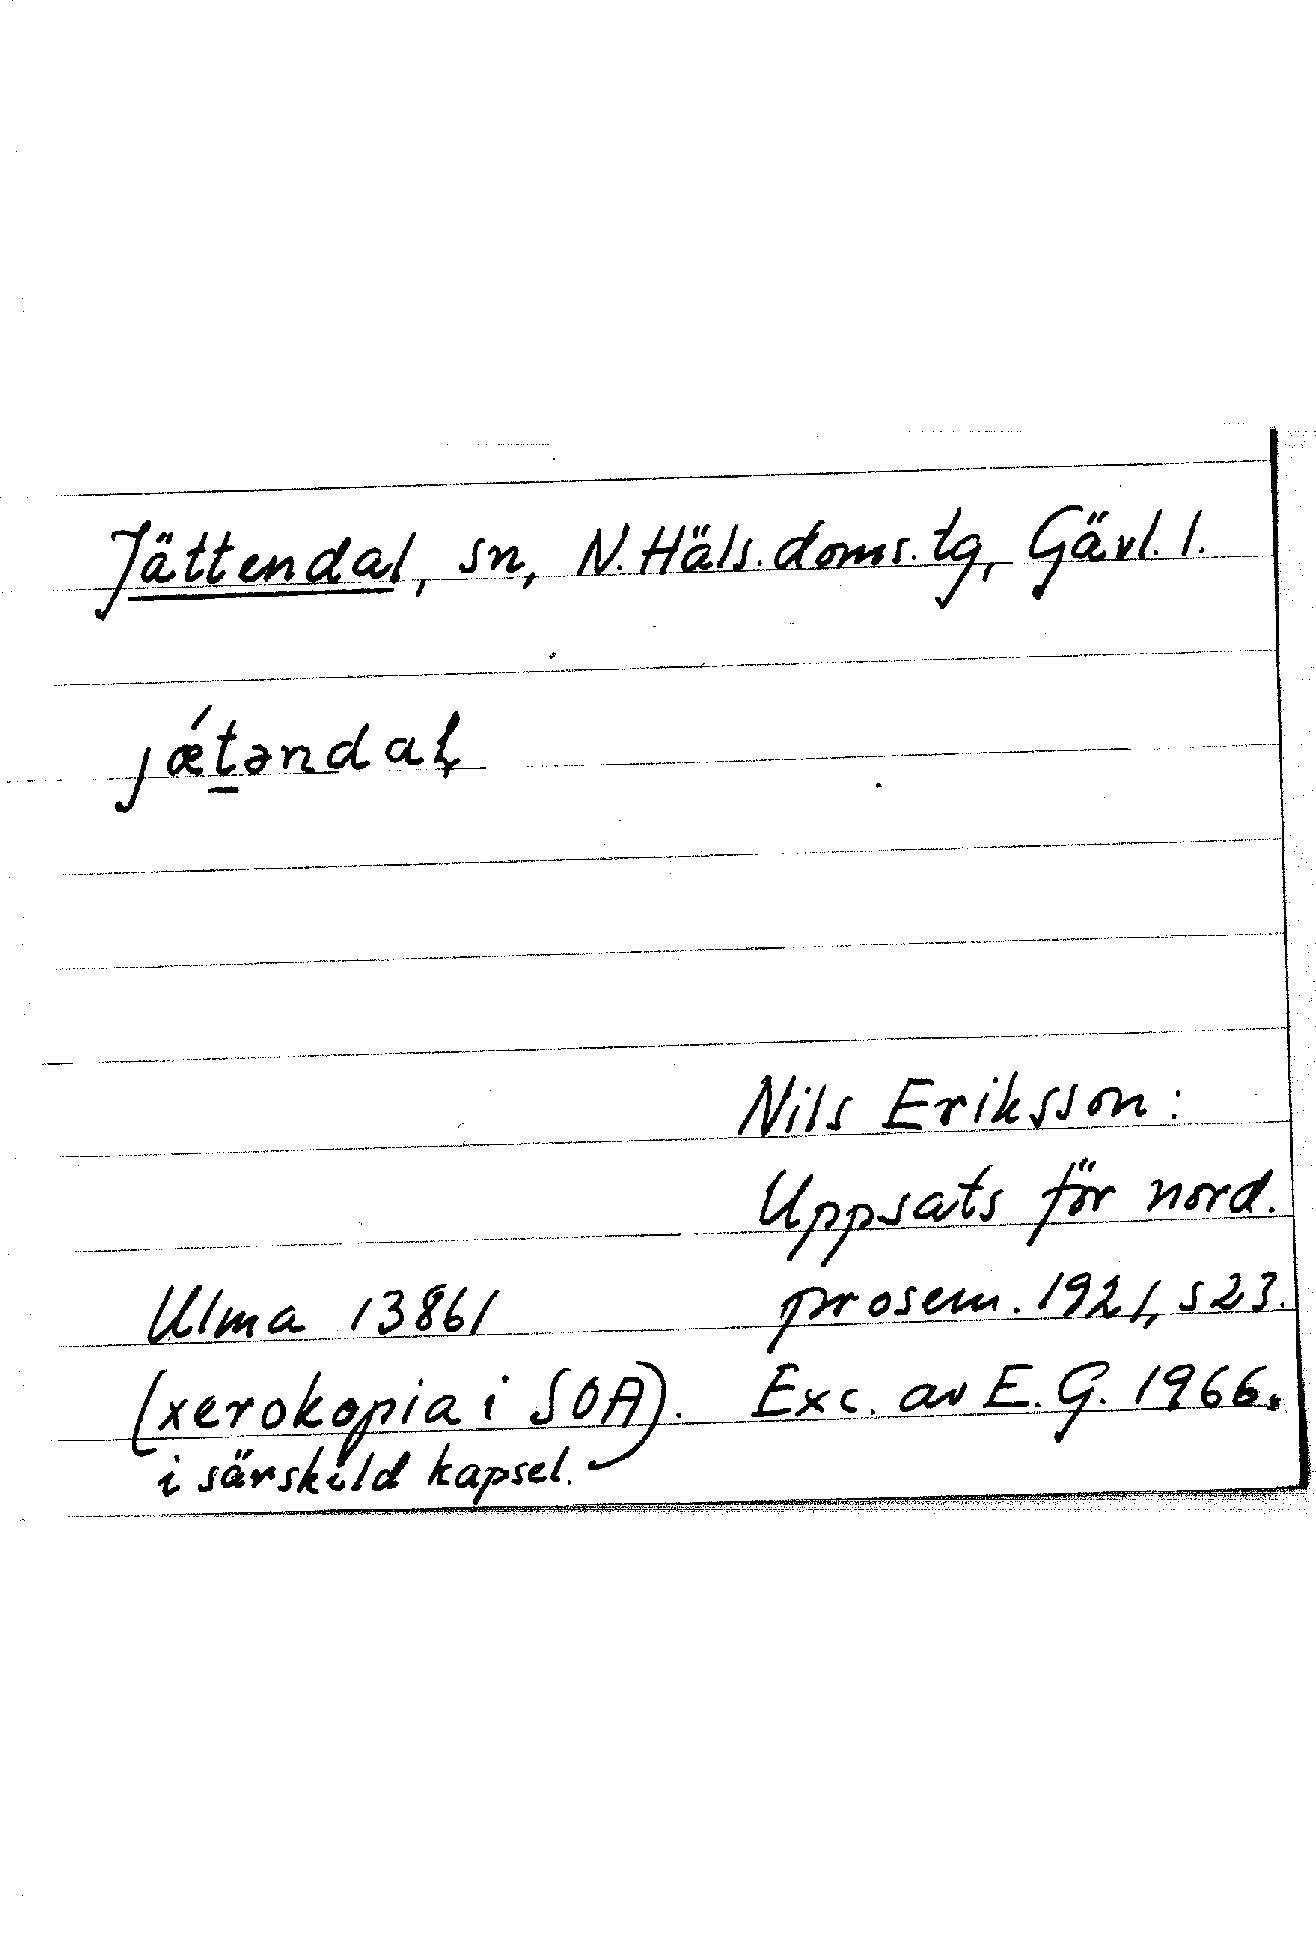 Jättendal, sn, N. Häls. doms. tg, Gävl. l.
jǽt̠əndaɫ
Nils Eriksson:
Uppsats för nord.
prosem. 1921, s 23.
Ulma 13861
(xerokopia i SOA).
i särskild kapsel.
Exc. av E. G. 1966.